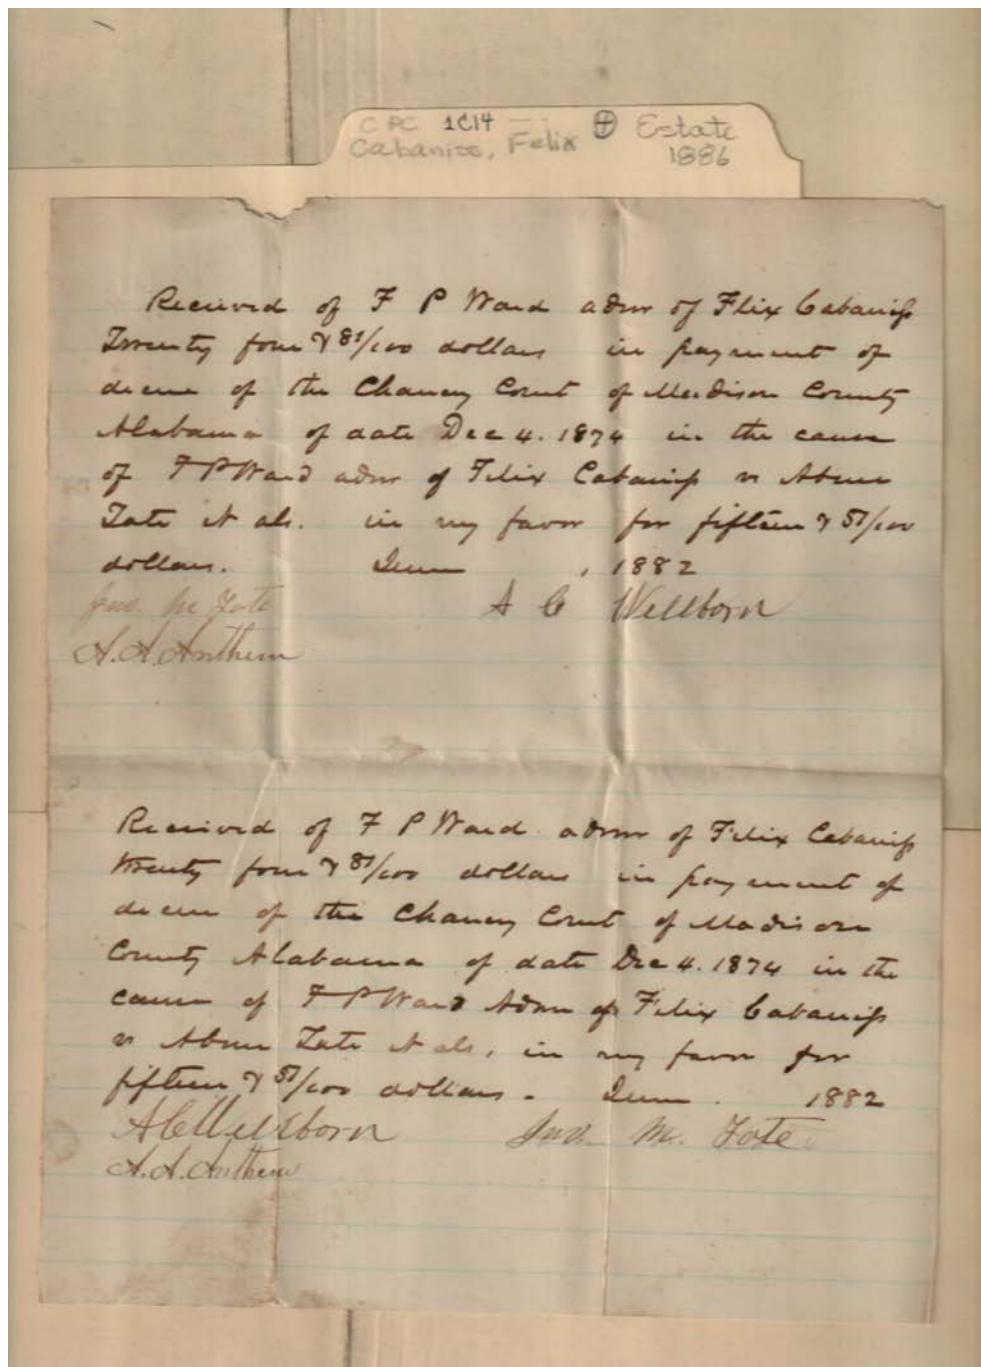 CPC 1C14 Estate
Cabaniss, Felix 1886
Received of F P Ward admr of Flix Cabaniss
Twenty four & 81/100 dollars in payment of
decree of the Chancy Court of Madison County
Alabama of date Dec 4. 1874 in the cause
of F P Ward admr of Felix Cabaniss vs Abner
Tate et als. in my favor for fifteen & 51/100
dollars. June , 1882
Jno. M Tate A C Wellborn
A. A. Anthem
Received of F P Ward admr of Felix Cabaniss
twenty four & 81/100 dollars in payment of
decree of the Chancy Court of Madison
County Alabama of date Dec 4. 1874 in the
cause of F P Ward Admr of Felix Cabaniss
vs Abner Tate et als, in my favor for
fifteen & 51/100 dollars. June . 1882
A C Wellborn Jno. M. Tate
A. A. Anthem